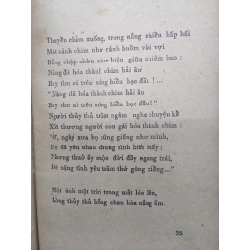 Thuyền chìm xuống, trong nắng chiều hấp hối
Một cánh chim như cánh buồm vời vợi
Bỗng chập chờn như hiện giữa chiêm bao:
Nàng đã hóa thành chim hải âu
Bay tìm ai trên sóng biếc bạc đầu!...
"Nàng đã hóa thành chim hải âu
Bay tìm ai trên sóng biếc bạc đầu!"
Người thủy thủ trầm ngâm nghe chuyện kể
Xót thương người con gái hóa thành chim:
"Ơ, ngày xưa họ cũng giống như mình,
Họ đã yêu nhau chung tình biết mấy;
Nhưng thuở ấy cuộc đời đầy ngang trái,
Để nặng tình yêu trăm thứ gông xiềng..."
Một ánh mặt trời trong mắt lóe lên,
Lòng thủy thủ bỗng chan hòa nắng ấm.
25